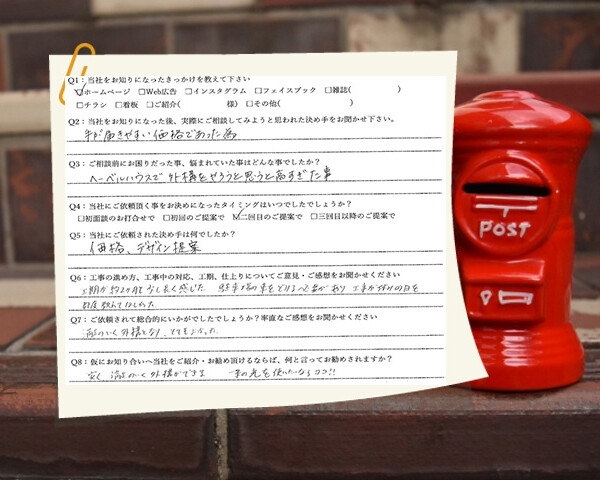 Q1：当社をお知りになったきっかけを教えて下さい
☑ホームページ □Web広告 □インスタグラム □フェイスブック □雑誌( )
□チラシ □看板 □ご紹介( 様) □その他( )
Q2：当社をお知りになった後、実際にご相談してみようと思われた決め手をお聞かせ下さい。
手が届きやすい価格であった為
Q3：ご相談前にお困りだった事、悩まれていた事はどんな事でしたか？
ヘーベルハウスで外構をやろうと思うと高すぎた事
Q4：当社にご依頼頂く事をお決めになったタイミングはいつでしたでしょうか？
□初面談のお打合せで □初回のご提案で ☑二回目のご提案で □三回目以降のご提案で
Q5：当社にご依頼された決め手は何でしたか？
価格、デザイン提案
Q6：工事の進め方、工事中の対応、工期、仕上りについてご意見・ご感想をお聞かせください
工期が約2ヶ月で少し長く感じた。 駐車場の車をどける必要があり 工事が休みの日を
教えてほしかった
Q7：ご依頼されて総合的にいかがでしたでしょうか？率直なご感想をお聞かせください
満足のいく外構となり、とてもよかった
Q8：仮にお知り合いへ当社をご紹介・お勧め頂けるならば、何と言ってお勧めされますか？
安く、満足のいく外構ができる
POST